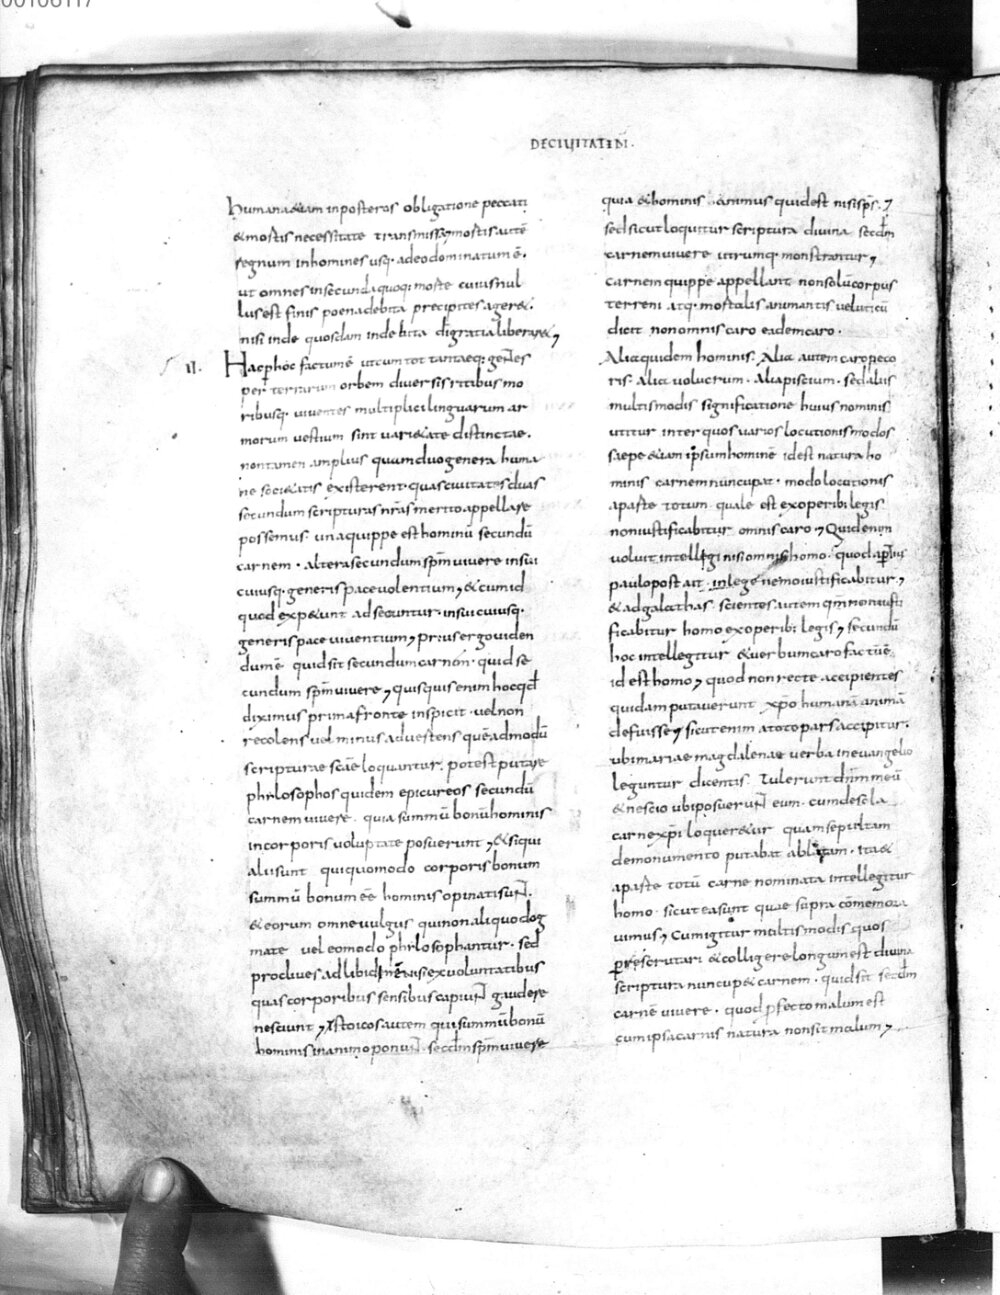 00106117
DECIUITATE DĪ.
humana etiam inposteros obligatione peccati
& mortis necessitate transmissa; mortis autē
regnum inhomines usq; adeo dominatum ē.
ut omnes insecundā quoq; morte cuius nul
lus est finis poena debita precipites ager&.
nisi inde quosdam indebita di gratia liberar&;
II. Hac p hoc factum ē ut cum tot tantaeq; gentes
per terrarum orbem diuersis ritibus mo
ribusq; uiuentes multiplici linguarum ar
morum uestium sint uari&ate distinctae.
non tamen amplius quam duo genera huma
ne soci&atis existerent quas ciuitates duas
secundum scripturas nr̄as merito appellare
possemus. una quippe est hominū secundū
carnem. altera secundum spm̄ uiuere in sui
cuiusq; generis pace uolentium; & cum id
quod exp&unt adsecuntur. insui cuiusq;
generis pace uiuentium; prius ergo uiden
dum ē quid sit secundum carnem. quid se
cundum spm̄ uiuere; quisquis enim hoc qd̄
diximus prima fronte inspicit. uel non
recolens uel minus aduertens quēadmodū
scripturae sc̄ae loquantur. potest putare
philosophos quidem epicureos secundū
carnem uiuere. quia summū bonū hominis
in corporis uoluptate posuerunt; & siqui
alii sunt qui quomodo corporis bonum
summū bonum eē hominis opinati sunt.
& eorum omne uulgus qui non aliquo dog
mate uel eo modo philosophantur. sed
procliues ad libidinē nisi ex uoluntatibus
quas corporibus sensibus capiunt gaudere
nesciunt; Stoicos autem qui summū bonū
hominis in animo ponunt. secdm̄ spm̄ uiuere
quia & hominis animus quid est nisi sps̄;
sed sicut loquitur scriptura diuina secdm̄
carnem uiuere utrumq; monstrantur;
Carnem quippe appellant non solū corpus
terreni atq; mortalis animantis uelut cū
dicit non omnis caro eadem caro.
Alia quidem hominis. Alia autem caro peco
ris. alia uolucrum. alia piscium. sed aliis
multis modis significatione huius nominis
utitur inter quos uarios locutionis modos
saepe etiam ipsum hominē id est natura ho
minis carnem nuncupat. modo locutionis
a parte totum quale est ex operib; legis
non iustificabitur omnis caro; Quid enī
uoluit intellegi nisi omnis homo. quod aptius
paulo post ait. in lege nemo iustificabitur;
& ad galathas. scientes autem qm̄ non iusti
ficabitur homo ex operib; legis; secundū
hoc intellegitur & uerbum caro factū ē.
id est homo; quod non recte accipientes
quidam putauerunt xp̄o humanā animā
defuisse; sicut enim a toto pars accipitur.
ubi mariae magdalenae uerba in euangelio
leguntur dicentis. Tulerunt dnm̄ meū
& nescio ubi posuerunt eum. cum de sola
carne xp̄i loquer&ur quam sepultam
de monumento putabat ablatam. Ita &
a parte totū carne nominata intellegitur
homo. sicut ea sunt quae supra cōmemora
uimus; Cum igitur multis modis quos
prescrutari & colligere longum est diuina
scriptura nuncup& carnem. quid sit secdm̄
carnē uiuere. quod pfecto malum est
cum ipsa carnis natura non sit malum;